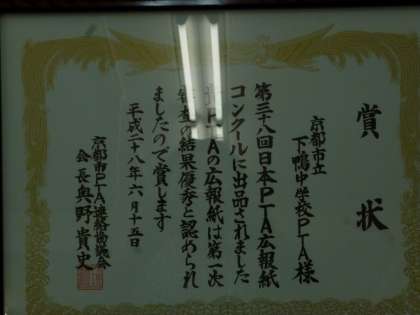 賞状
京都市立
下鴨中学校PTA様
第三十八回日本PTA広報紙
コンクールに出品されました
PTAの広報紙は第一次
審査の結果優秀と認められ
ましたので賞します
平成二十八年六月十五日
京都市PTA連絡協議会
会長奥野貴史